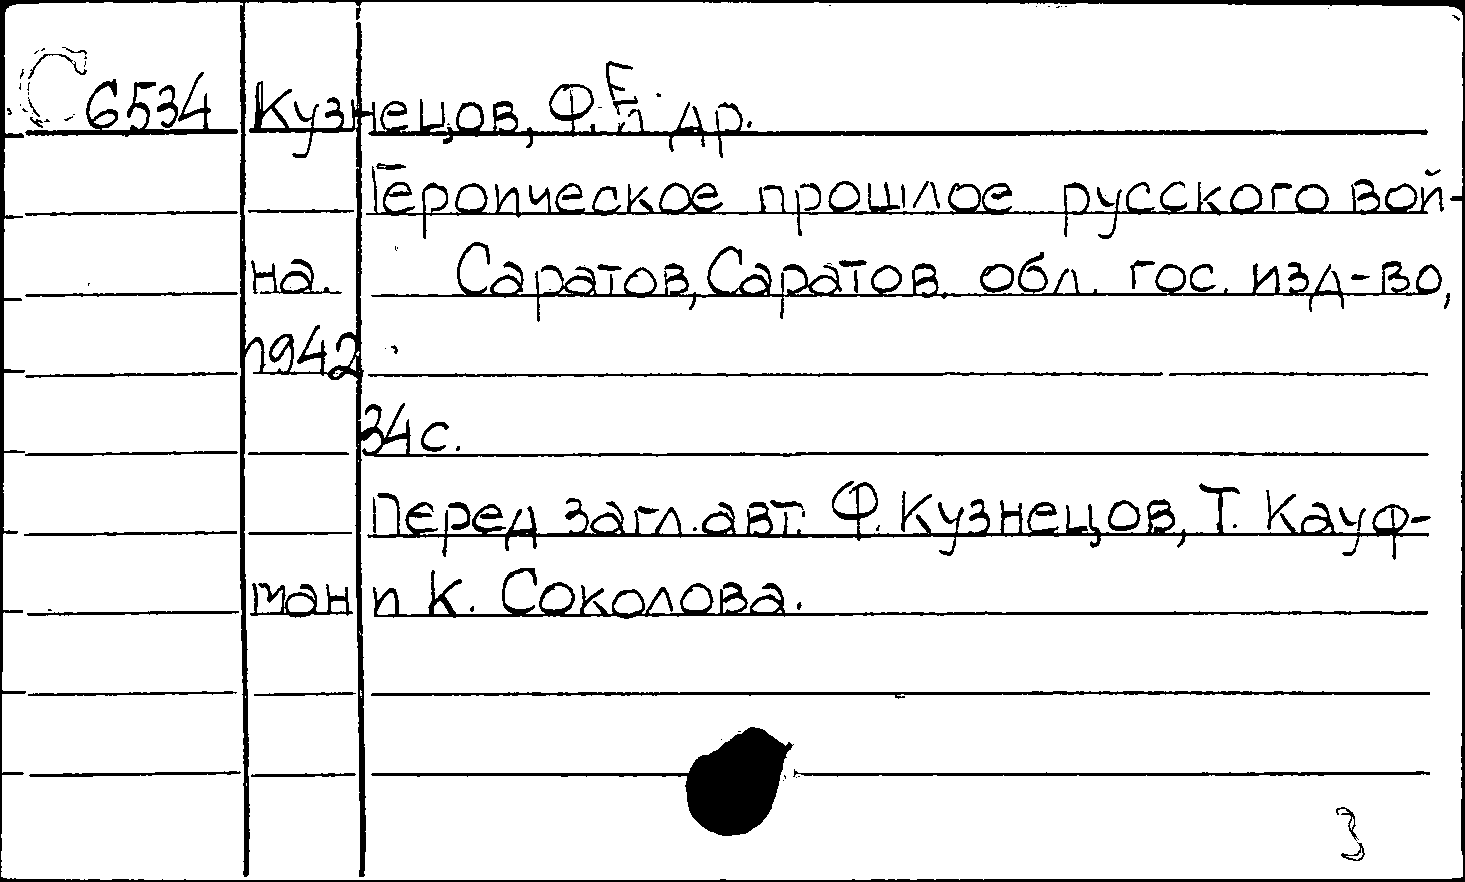 С 6534 Кузнецов, Ф.Е. и др.
Героическое прошлое русского вой-
на. Саратов, Саратов. обл. гос. изд-во,
1942.
34 с.
Перед загл. авт. Ф. Кузнецов, Т. Кауф-
ман и К. Соколова.
3